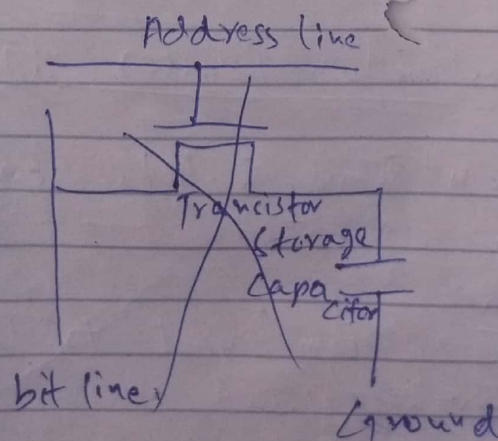 Address line
Trancistor
Storage
Capa
citor
bit line
Ground